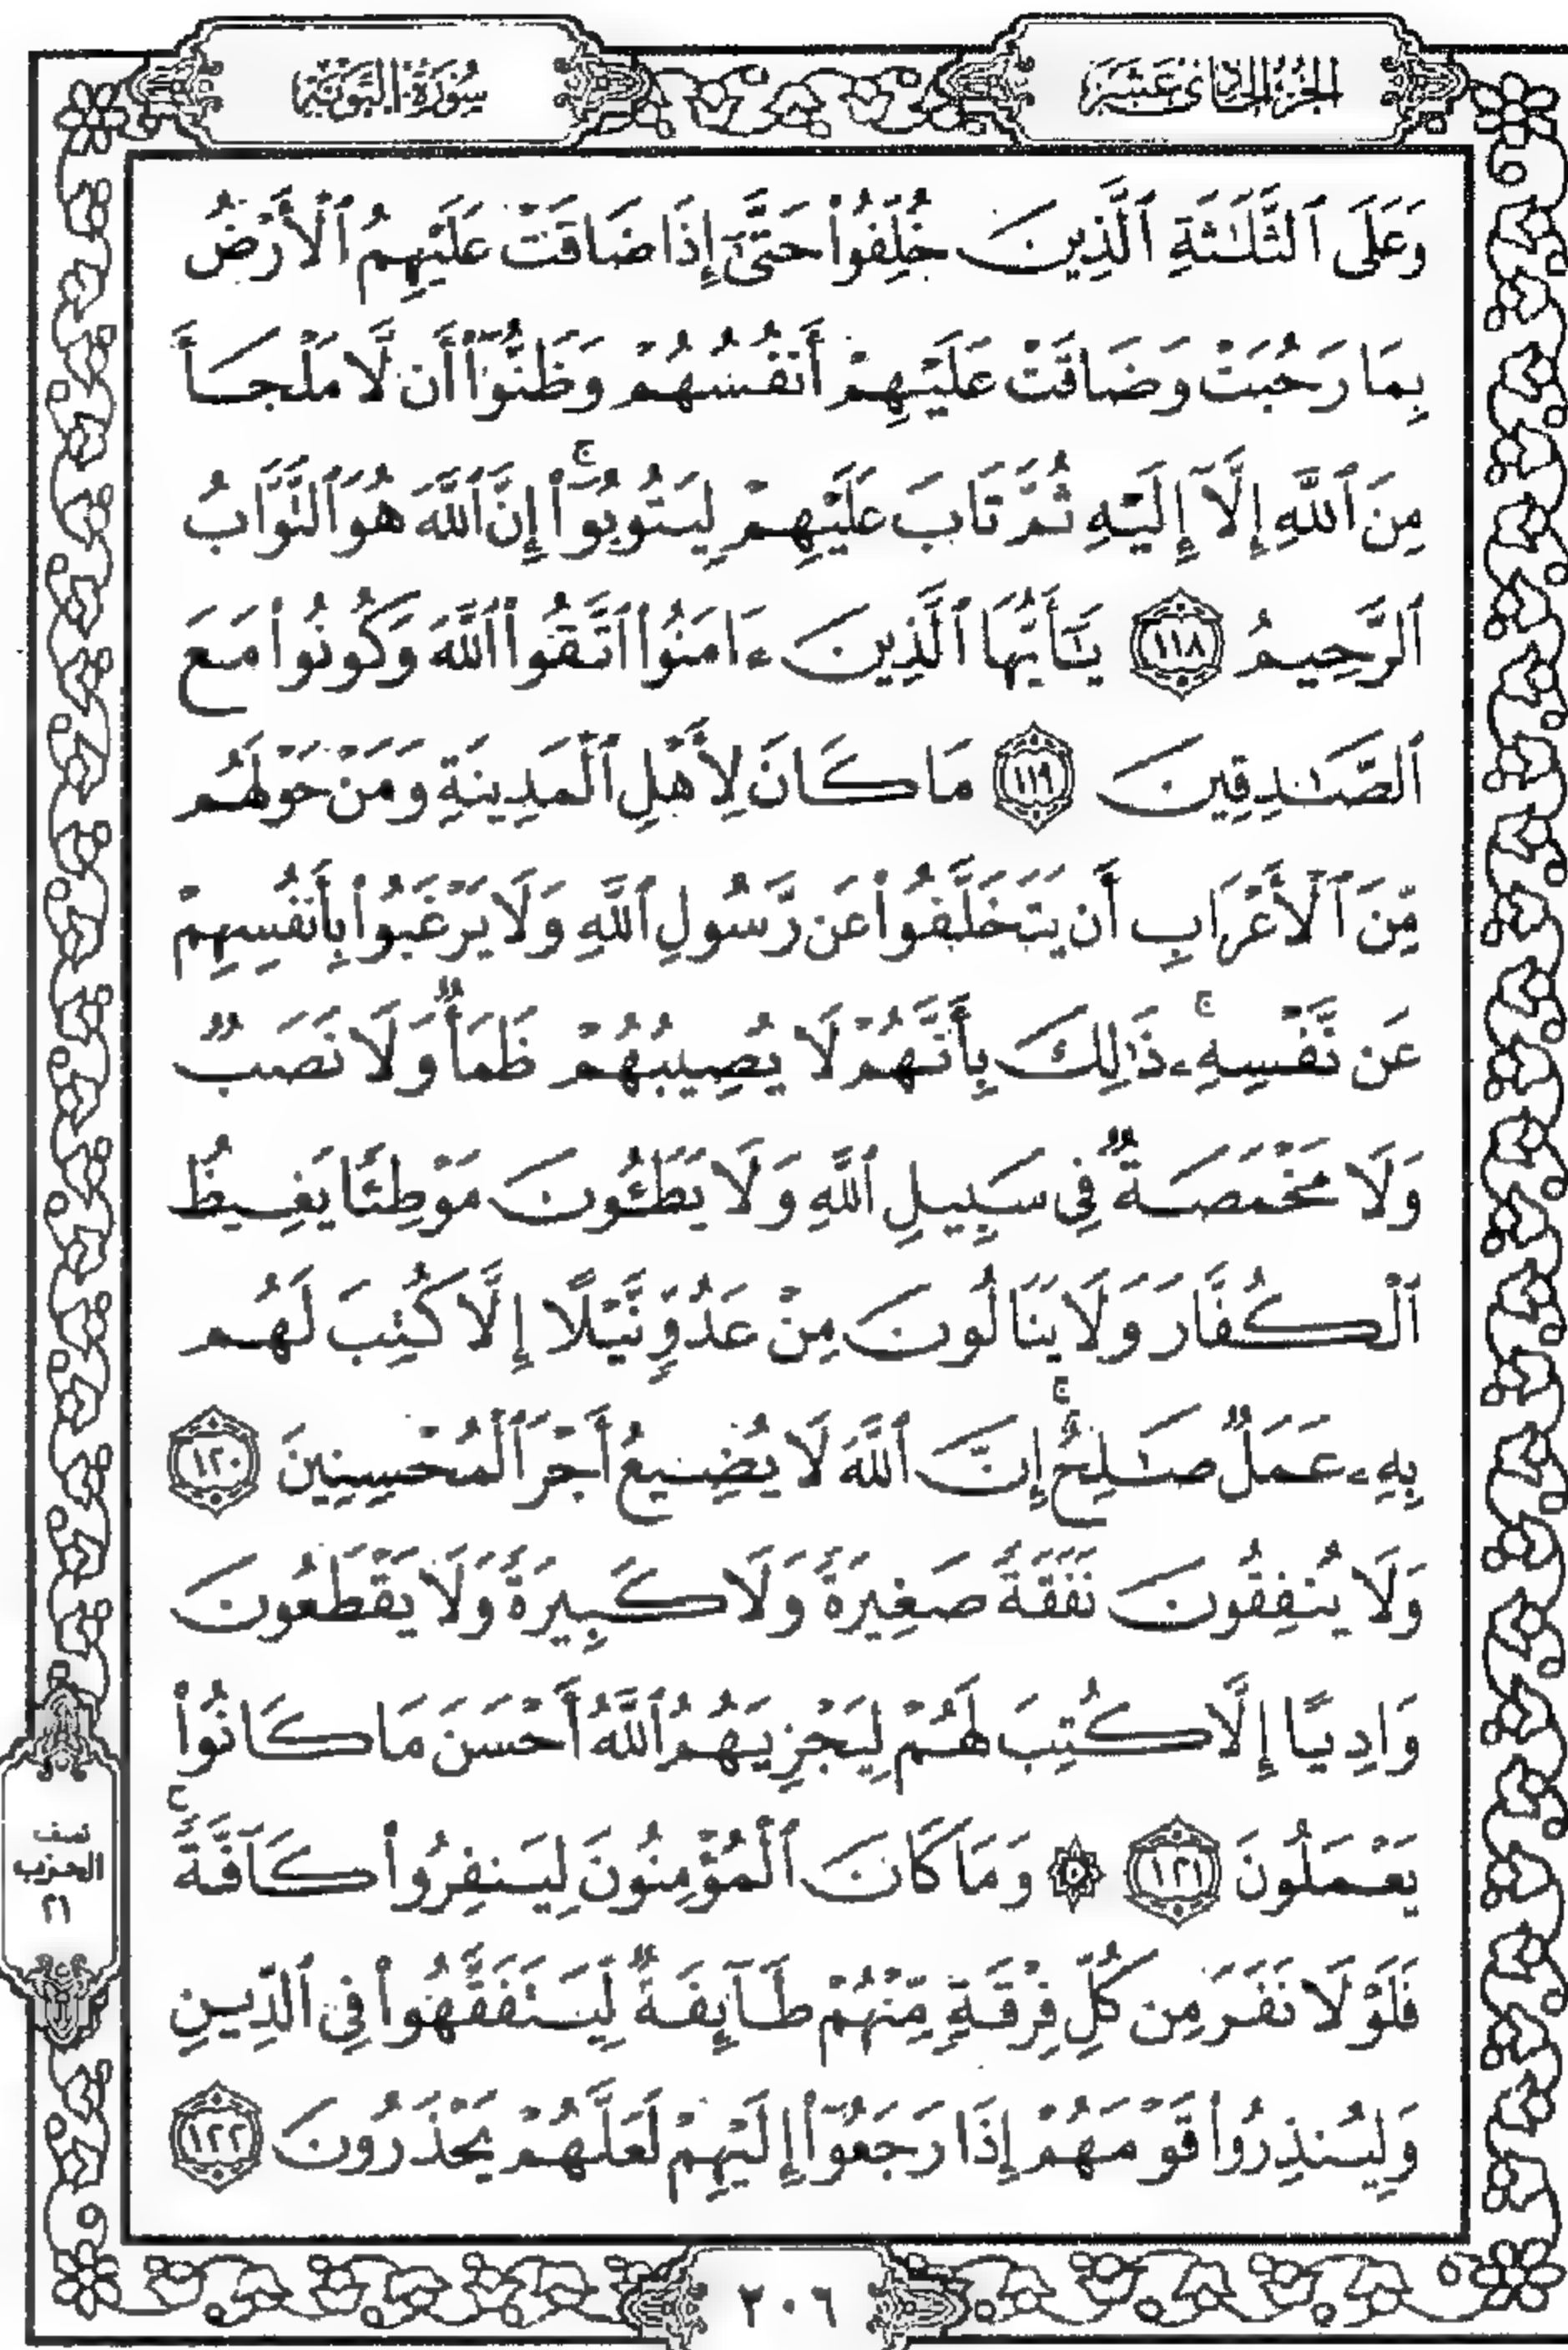 الجزء الحادي عشر
سورة التوبة
وَعَلَى ٱلثَّلَـٰثَةِ ٱلَّذِينَ خُلِّفُوا۟ حَتَّىٰٓ إِذَا ضَاقَتْ عَلَيْهِمُ ٱلْأَرْضُ
بِمَا رَحُبَتْ وَضَاقَتْ عَلَيْهِمْ أَنفُسُهُمْ وَظَنُّوٓا۟ أَن لَّا مَلْجَأَ
مِنَ ٱللَّهِ إِلَّآ إِلَيْهِ ثُمَّ تَابَ عَلَيْهِمْ لِيَتُوبُوٓا۟ ۚ إِنَّ ٱللَّهَ هُوَ ٱلتَّوَّابُ
ٱلرَّحِيمُ ١١٨ يَـٰٓأَيُّهَا ٱلَّذِينَ ءَامَنُوا۟ ٱتَّقُوا۟ ٱللَّهَ وَكُونُوا۟ مَعَ
ٱلصَّـٰدِقِينَ ١١٩ مَا كَانَ لِأَهْلِ ٱلْمَدِينَةِ وَمَنْ حَوْلَهُم
مِّنَ ٱلْأَعْرَابِ أَن يَتَخَلَّفُوا۟ عَن رَّسُولِ ٱللَّهِ وَلَا يَرْغَبُوا۟ بِأَنفُسِهِمْ
عَن نَّفْسِهِۦ ۚ ذَٰلِكَ بِأَنَّهُمْ لَا يُصِيبُهُمْ ظَمَأٌ وَلَا نَصَبٌ
وَلَا مَخْمَصَةٌ فِى سَبِيلِ ٱللَّهِ وَلَا يَطَـُٔونَ مَوْطِئًا يَغِيظُ
ٱلْكُفَّارَ وَلَا يَنَالُونَ مِنْ عَدُوٍّ نَّيْلًا إِلَّا كُتِبَ لَهُم
بِهِۦ عَمَلٌ صَـٰلِحٌ ۚ إِنَّ ٱللَّهَ لَا يُضِيعُ أَجْرَ ٱلْمُحْسِنِينَ ١٢٠
وَلَا يُنفِقُونَ نَفَقَةً صَغِيرَةً وَلَا كَبِيرَةً وَلَا يَقْطَعُونَ
وَادِيًا إِلَّا كُتِبَ لَهُمْ لِيَجْزِيَهُمُ ٱللَّهُ أَحْسَنَ مَا كَانُوا۟
يَعْمَلُونَ ١٢١ ۞ وَمَا كَانَ ٱلْمُؤْمِنُونَ لِيَنفِرُوا۟ كَآفَّةً ۚ
فَلَوْلَا نَفَرَ مِن كُلِّ فِرْقَةٍ مِّنْهُمْ طَآئِفَةٌ لِّيَتَفَقَّهُوا۟ فِى ٱلدِّينِ
وَلِيُنذِرُوا۟ قَوْمَهُمْ إِذَا رَجَعُوٓا۟ إِلَيْهِمْ لَعَلَّهُمْ يَحْذَرُونَ ١٢٢
نصف
الحزب
٢١
٢٠٦